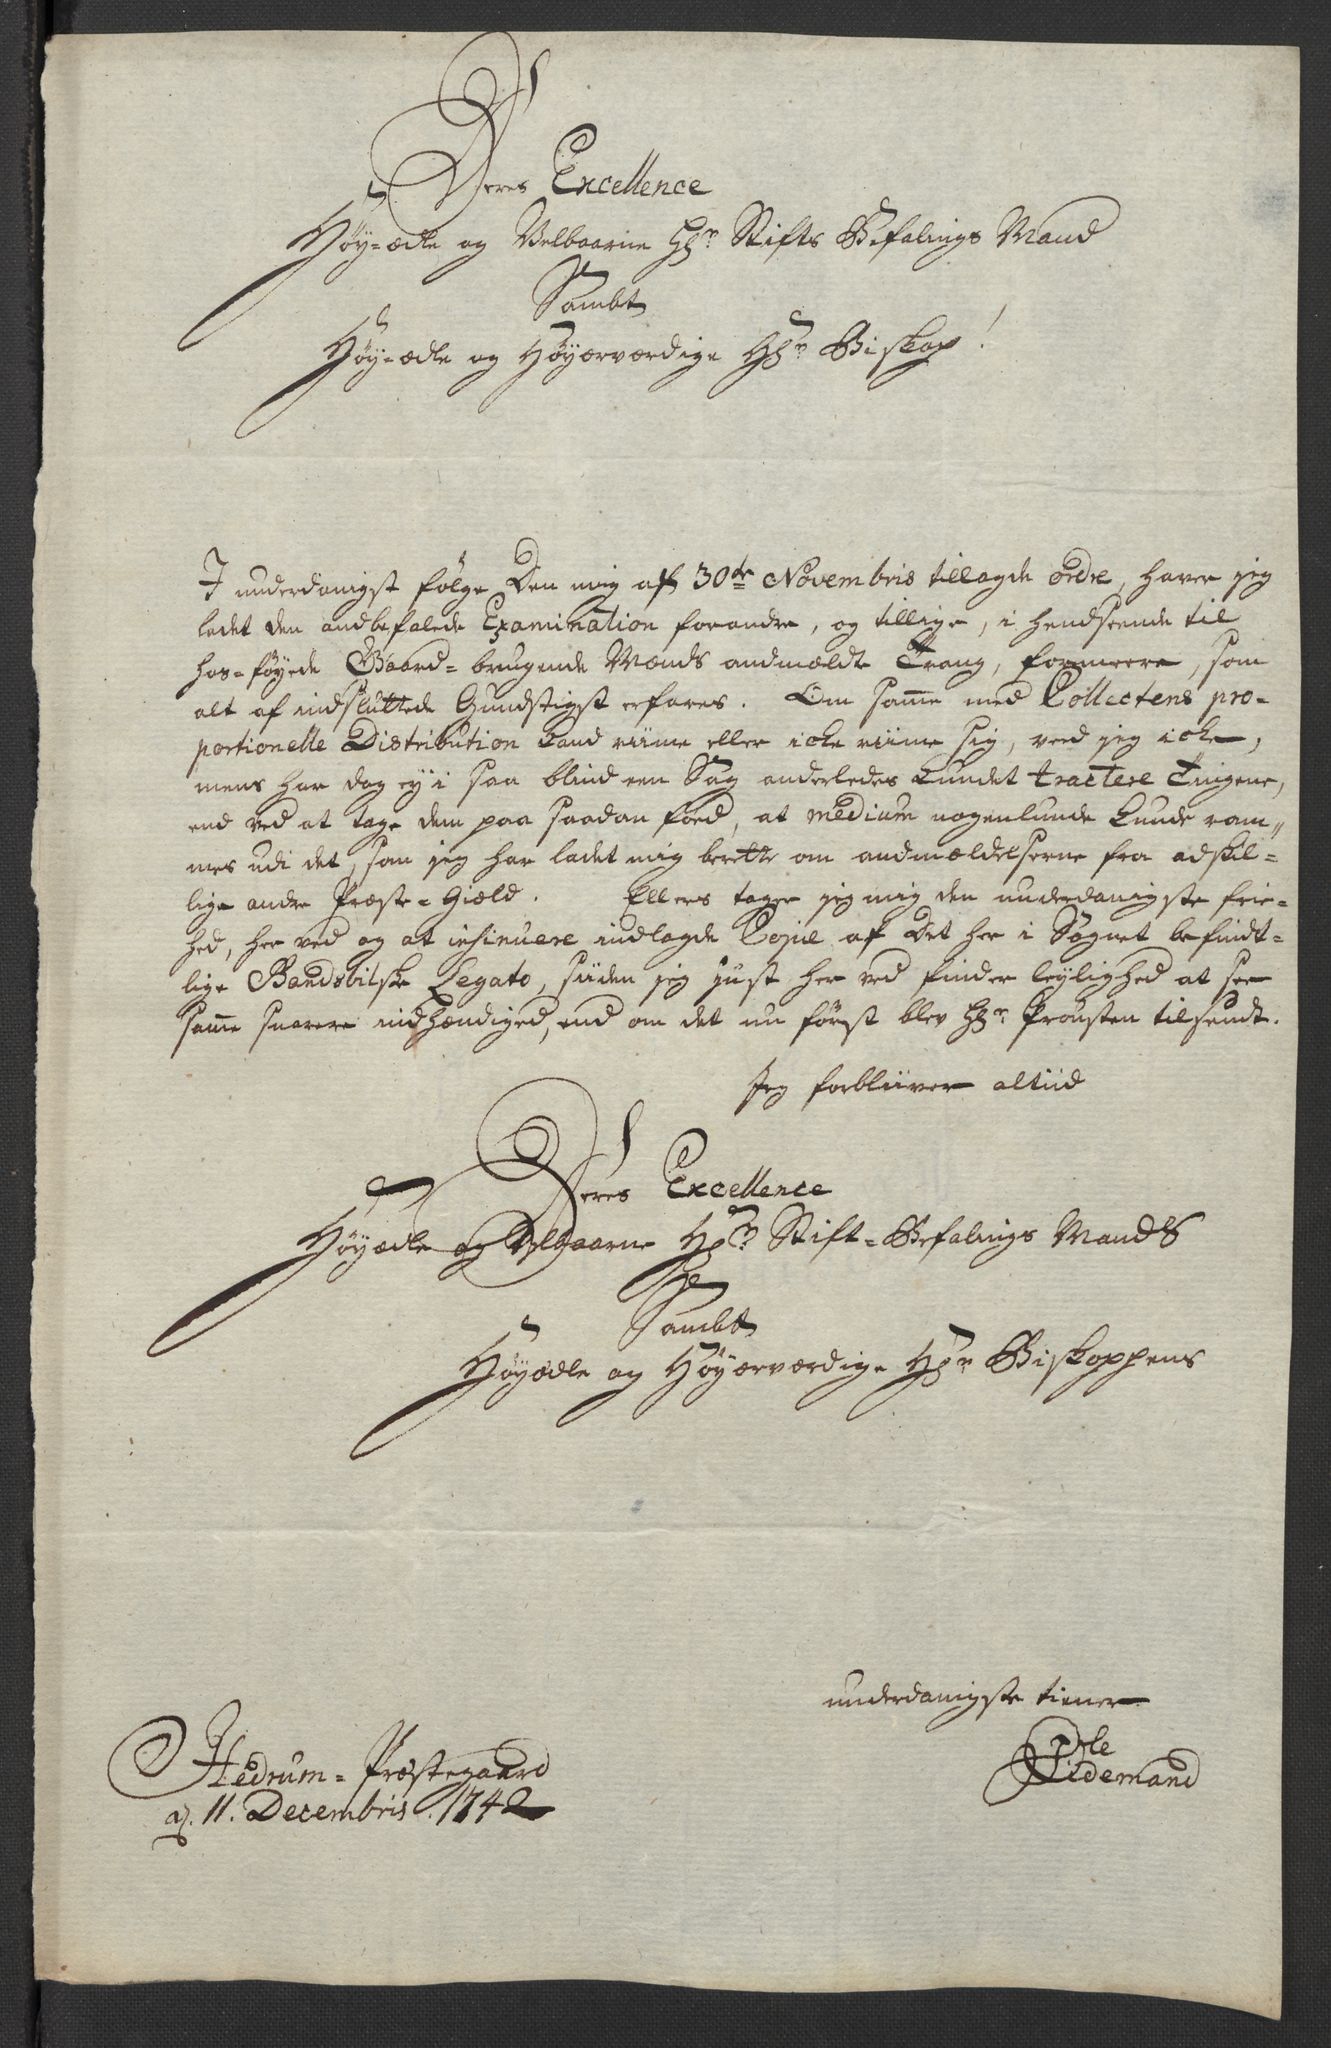 Deres Excellence
Høy-ædle og Velbaarne Hr. Stifts Befalings Mand
Sambt
Høy-ædle og Høyærværdige Hr. Biskop!
I underdanigst følge Den mig af 30de Novembris tillagde ordre, haver jeg
ladet den anbefalede Examination forandre, og tillige, i hendseende til
hos-føyede Gaard-brugende Mænds andmældte Trang, formeere, som
alt af indsluttede Gundstigst erfares. Om samme med Collectens pro-
portionelle Distribution kand riime eller icke riime sig, veed jeg icke,
mens har dog ey i saa blind een Sag anderledes kundet tractere Tingene,
end ved at tage dem paa saadan foed, at medium nogenlunde kunde ram„
mes udi det, som jeg har ladet mig berette om andmældelserne fra adskil-
lige andre Præste-Gield. Ellers tager jeg mig den underdanigste frie-
hed, her ved og at insinuere indlagde Copie af Det her i Sognet befindt-
lige Bandsbilske Legato, siiden jeg just her ved finder leylighed at see
samme snarere indhændiged, end om det nu først blev Hr. Provsten tilsendt.
Jeg forbliiver altiid
Deres Excellence
Høyædle og Velbaarne Hr. Stift-Befalings Mands
Sambt
Høyædle og Høyærværdige Hr. Biskoppens
underdanigste tiener
Ole
Tidemand
Hedrum-Præstegaard
d. 11. Decembris. 1742